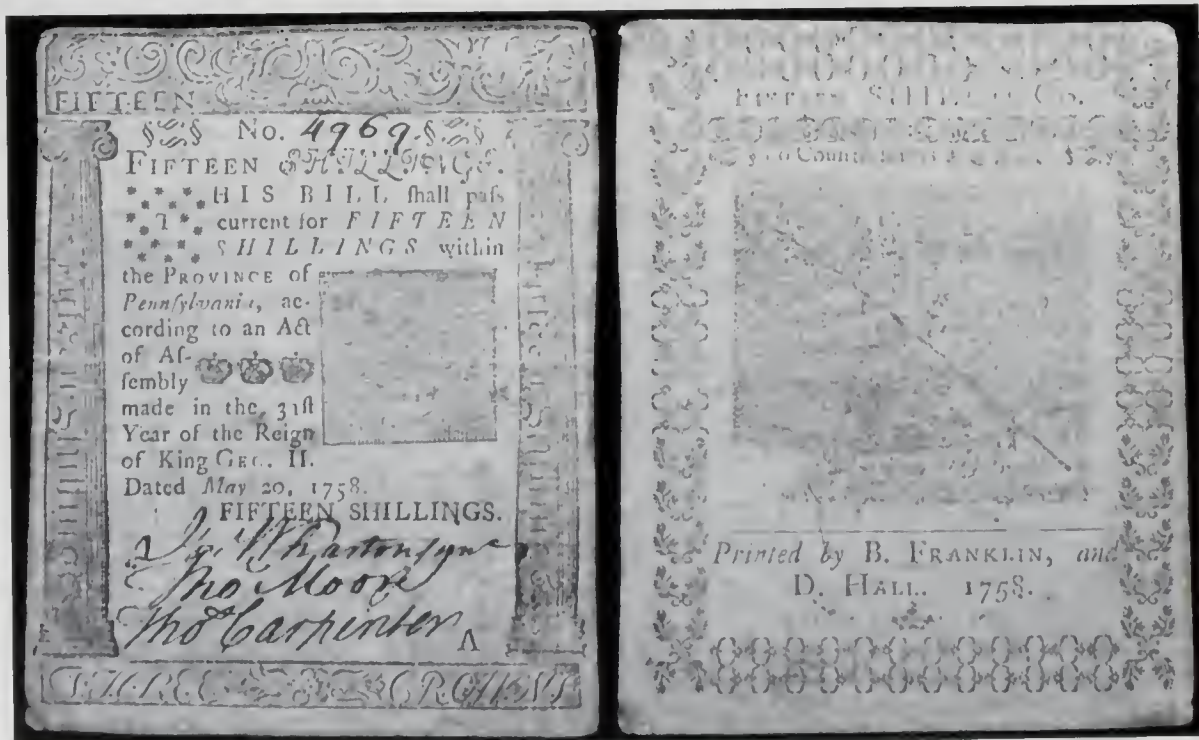 FIFTEEN
No. 4969.
FIFTEEN SHILLINGS.
THIS BILL ſhall paſs
current for FIFTEEN
SHILLINGS within
the PROVINCE of
Pennſylvania, ac-
cording to an Act
of Aſ-
ſembly
made in the 31ſt
Year of the Reign
of King GEO. II.
Dated May 20, 1758.
FIFTEEN SHILLINGS.
Jos Wharton junr
Tho Moore
Thos Carpenter
A
THREE CROWNS
Fifteen Shillings
Fifteen Shillings
to Counterfeit
Printed by B. FRANKLIN, and
D. HALL. 1758.